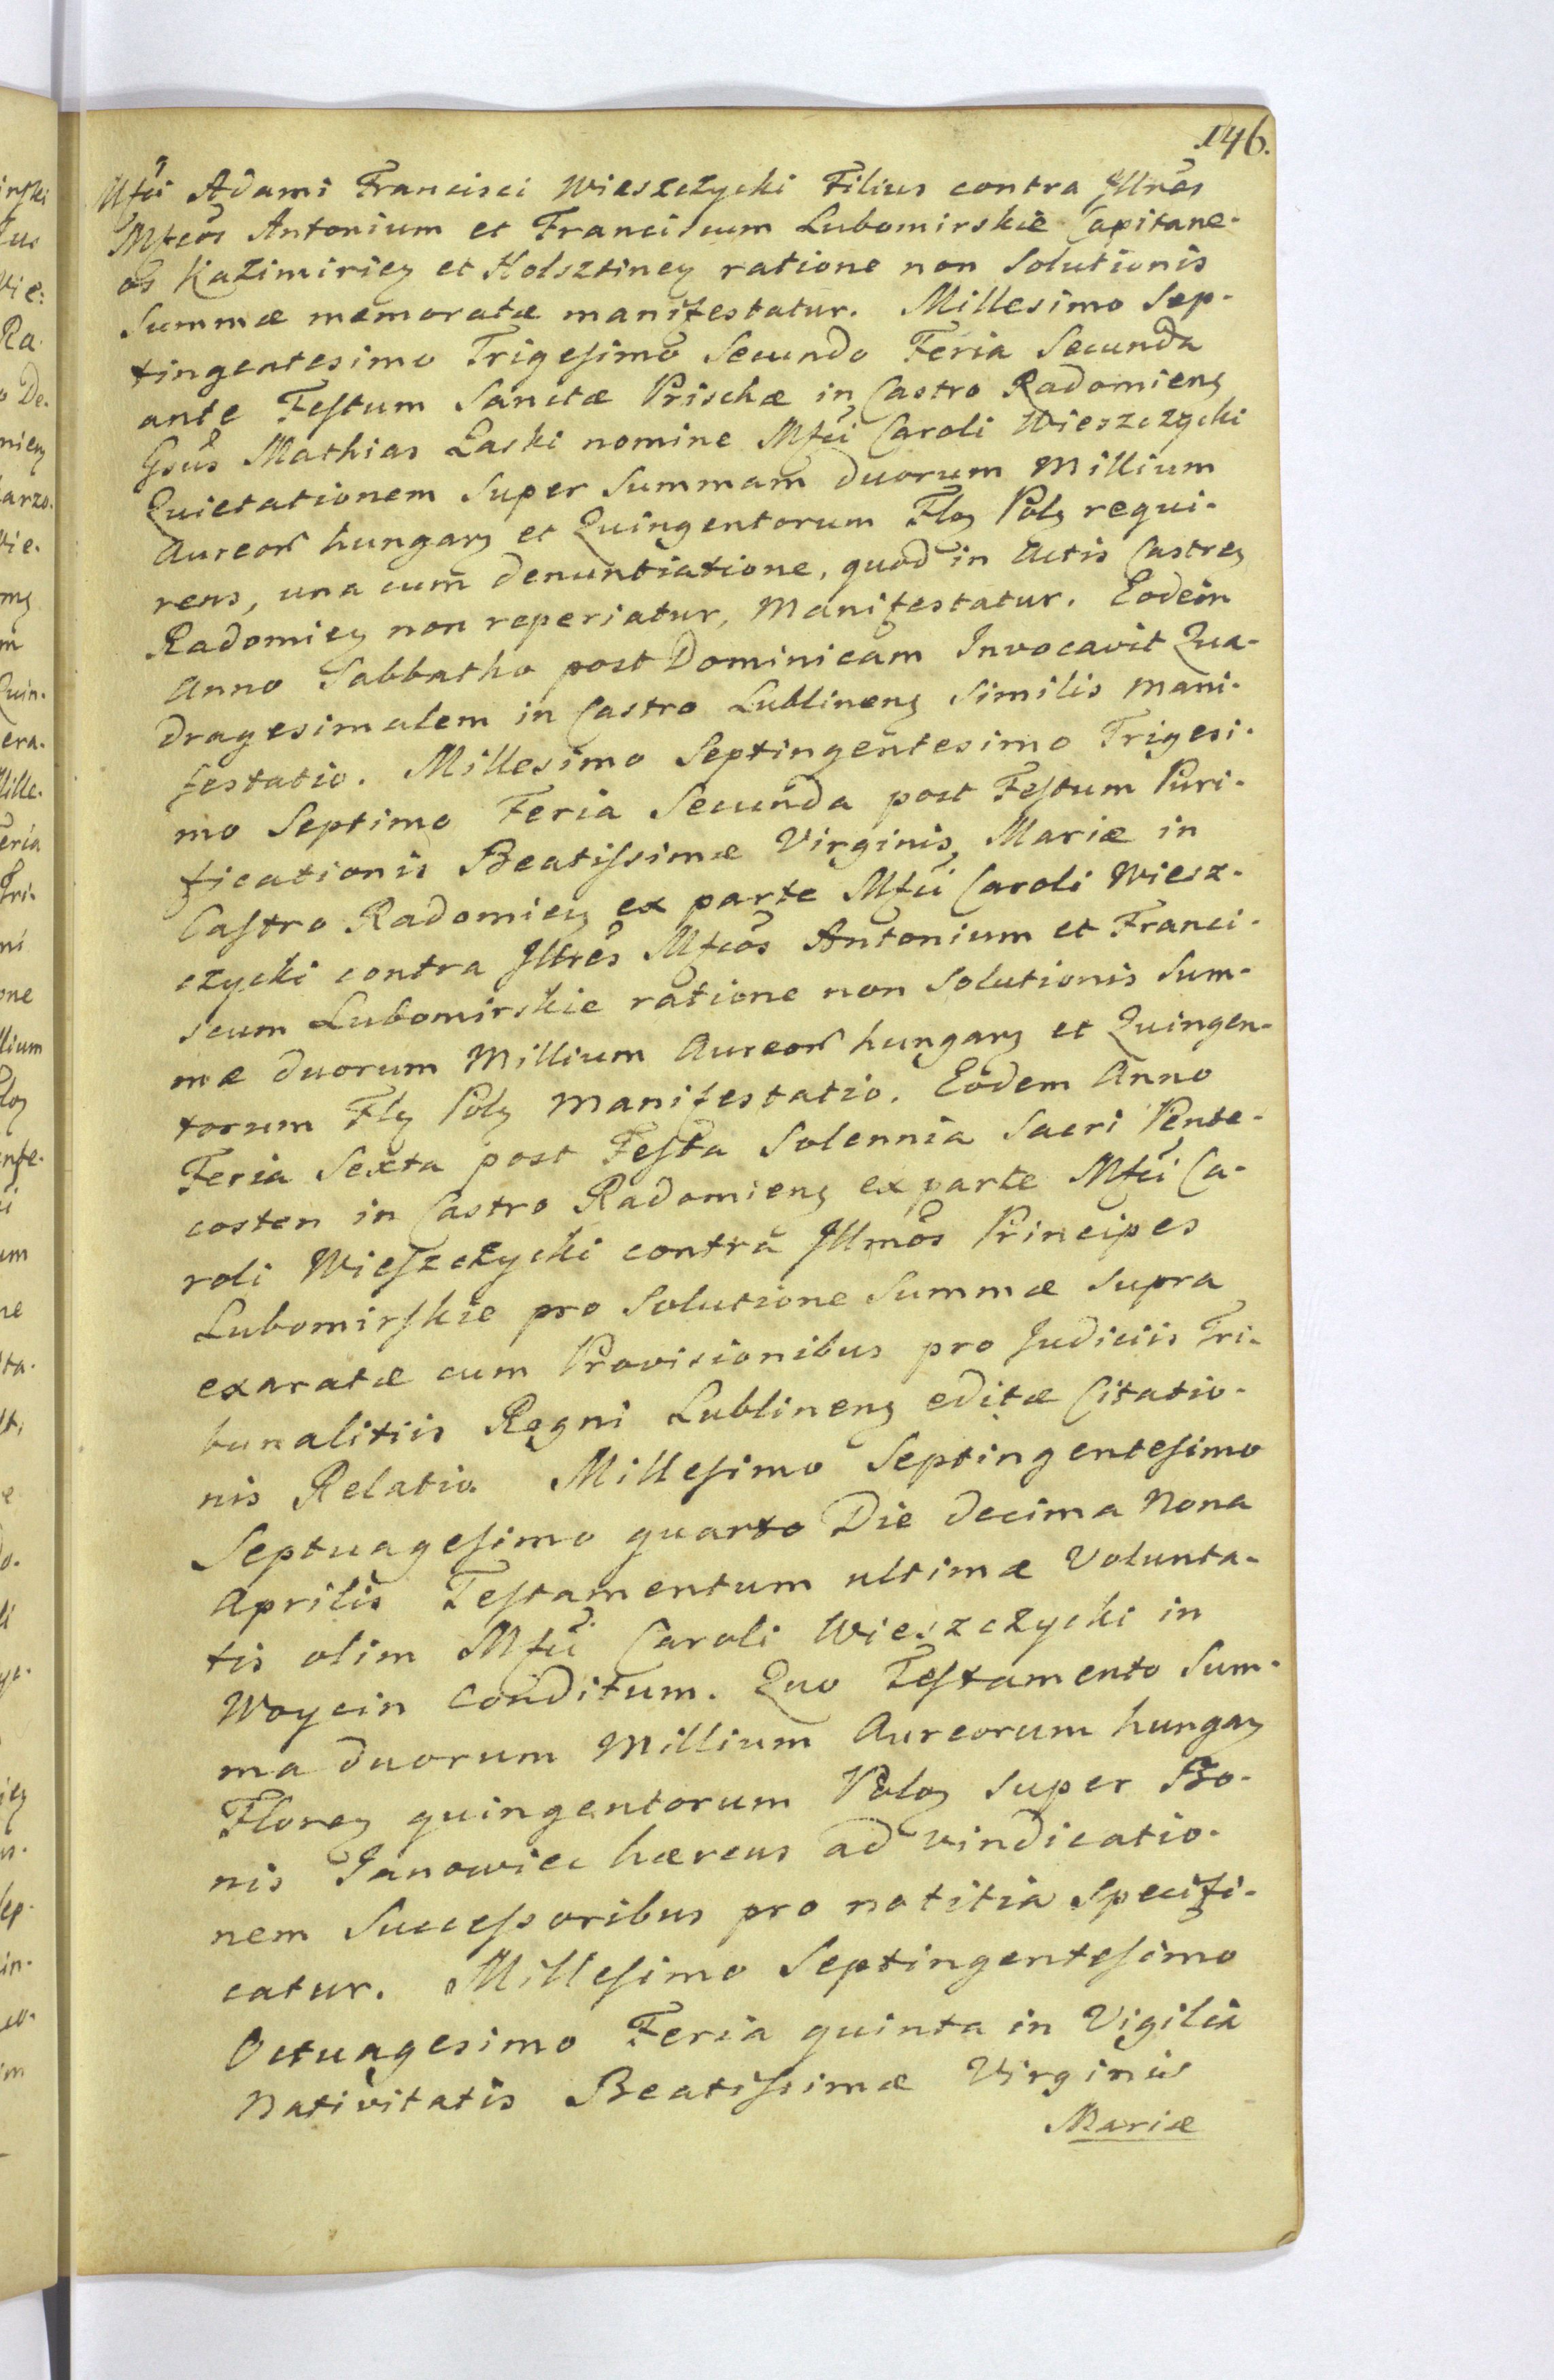 146.
Mfci Adami Francisci Wieszczycki Filius contra Jllres
Mfcos Antonium et Franciscum Lubomirskie Capitane-
os Kazimirien et Holsztinen ratione non Solutionis
Summæ memoratæ manifestatur. Millesimo Sep-
tingentesimo Trigesimo Secundo Feria Secunda
ante Festum Sanctæ Prischæ in Castro Radomiens
Gsus Mathias Laski nomine Mfci Caroli Wieszczycki
Quietationem Super Summam duorum Millium
Aureor hungar et Quingentorum Flor Pol requi-
rens, una cum denuntiatione, quod in Actis Castren
Radomien non reperiatur, Manifestatur. Eodem
Anno Sabbatho post Dominicam Invocavit Qua-
dragesimalem in Castro Lublinens Similis mani-
festatio. Millesimo Septingentesimo Trigesi-
mo Septimo Feria Secunda post Festum Puri-
ficationis Beatissimæ Virginis, Mariæ in
Castro Radomien ex parte Mfci Caroli Wiesz-
czycki contra Jllres Mfcos Antonium et Franci-
scum Lubomirskie ratione non Solutionis Sum-
mæ duorum Millium Aureor hungar et Quingen-
torum Fl Pol Manifestatio. Eodem Anno
Feria Sexta post Festa Solennia Sacri Pente-
costen in Castro Radomiens ex parte Mfci Ca-
roli Wieszczycki contra Jllmos Principes
Lubomirskie pro Solutione Summæ Supra
exaratæ cum Provisionibus pro Judiciis Tri-
bunalitiis Regni Lublinens editæ Citatio-
nis Relatio. Millesimo Septingentesimo
Septuagesimo quarto Die decima Nona
Aprilis Testamentum ultimæ Volunta-
tis olim Mfci Caroli Wieszczycki in
Woycin Conditum. Quo Testamento Sum-
ma duorum Millium Aureorum hungar
Floren quingentorum Polo Super Bo-
nis Janowiec hærens ad vindicatio-
nem Successoribus pro notitia Specifi-
catur. Millesimo Septingentesimo
Octuagesimo Feria quinta in Vigilia
Nativitatis Beatissimæ Virginis
Mariæ